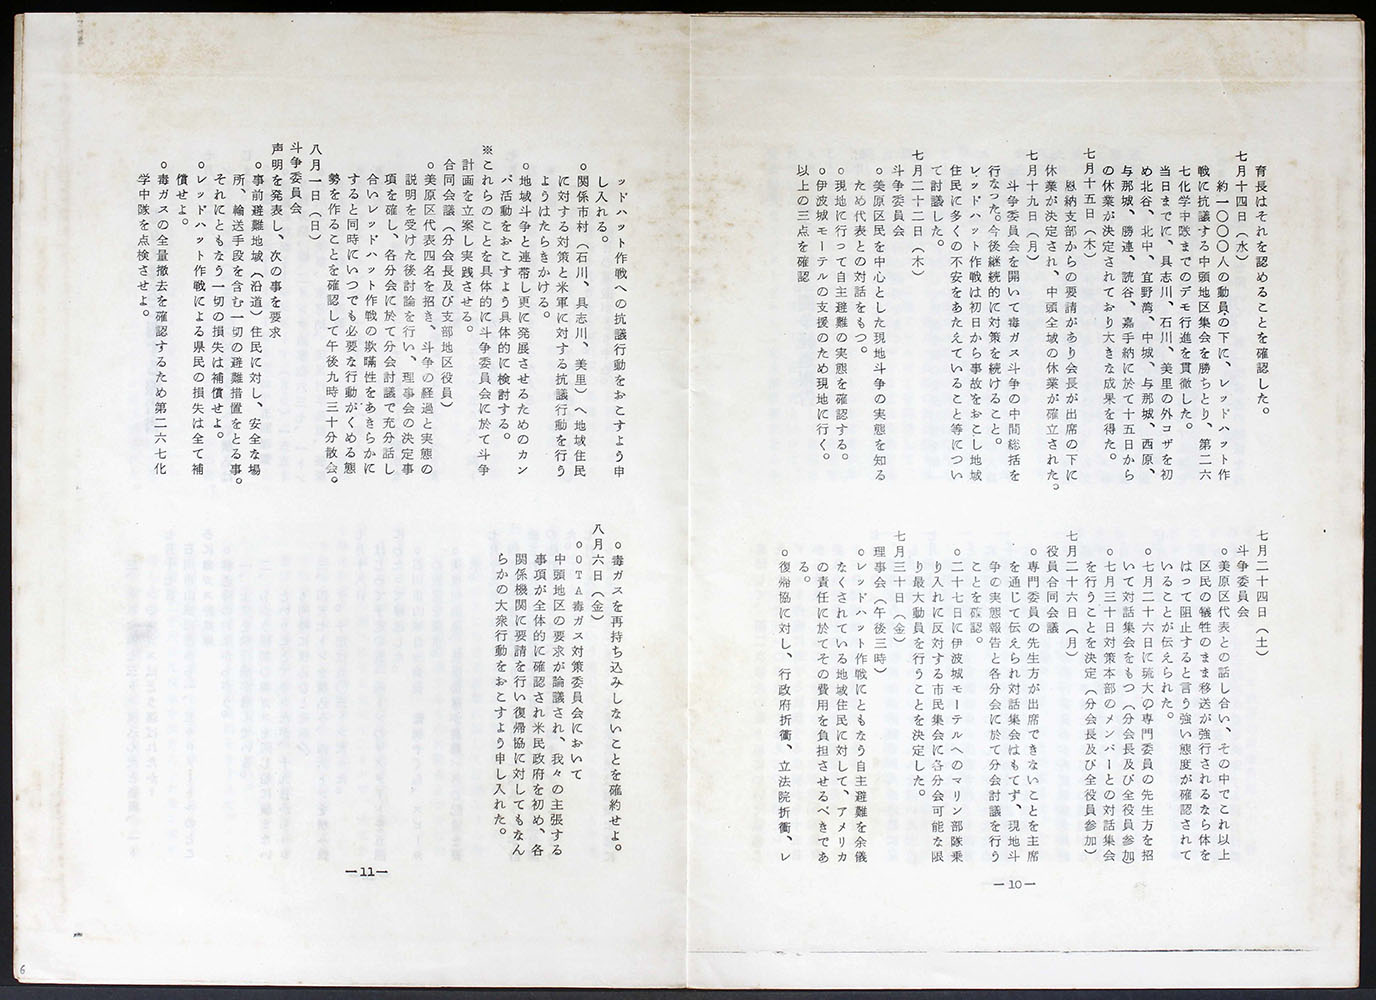 育長はそれを認めることを確認した。
七月十四日（水）
約一〇〇〇〇人の動員の下に、レッドハット作
戦に抗議する中頭地区集会を勝ちとり、第二六
七化学中隊までのデモ行進を貫徹した。
当日までに、具志川、石川、美里の外コザを初
め北谷、北中、宜野湾、中城、与那城、西原、
与那城、勝連、読谷、嘉手納に於て十五日から
の休業が決定されており大きな成果を得た。
七月十五日（木）
恩納支部からの要請があり会長が出席の下に
休業が決定され、中頭全域の休業が確立された。
七月十九日（月）
斗争委員会を開いて毒ガス斗争の中間総括を
行なった。今後継続的に対策を続けること。
レッドハット作戦は初日から事故をおこし地域
住民に多くの不安をあたえていること等につい
て討議した。
七月二十二日（木）
斗争委員会
○美原区民を中心とした現地斗争の実態を知る
ため代表との対話をもつ。
○現地に行って自主避難の実態を確認する。
○伊波城モーテルの支援のため現地に行く。
以上の三点を確認
七月二十四日（土）
斗争委員会
○美原区代表との話し合い、その中でこれ以上
区民の犠牲のまま移送が強行されるなら体を
はって阻止すると言う強い態度が確認されて
いることが伝えられた。
○七月二十六日に琉大の専門委員の先生方を招
いて対話集会をもつ（分会長及び全役員参加）
○七月三十日対策本部のメンバーとの対話集会
を行うことを決定（分会長及び全役員参加）
七月二十六日（月）
役員合同会議
○専門委員の先生方が出席できないことを主席
を通じて伝えられ対話集会はもてず、現地斗
争の実態報告と各分会に於て分会討議を行う
ことを確認。
○二十七日に伊波城モーテルへのマリン部隊乗
り入れに反対する市民集会に各分会可能な限
り最大動員を行うことを決定した。
七月三十日（金）
理事会（午後三時）
○レッドハット作戦にともなう自主避難を余儀
なくされている地域住民に対して、アメリカ
の責任に於てその費用を負担させるべきであ
る。
○復帰協に対し、行政府折衝、立法院折衝、レ
—10—
ッドハット作戦への抗議行動をおこすよう申
し入れる。
○関係市村（石川、具志川、美里）へ地域住民
に対する対策と米軍に対する抗議行動を行う
ようはたらきかける。
○地域斗争と連帯し更に発展させるためのカン
パ活動をおこすよう具体的に検討する。
※これらのことを具体的に斗争委員会に於て斗争
計画を立案し実践させる。
合同会議（分会長及び支部地区役員）
○美原区代表四名を招き、斗争の経過と実態の
説明を受けた後討論を行い、理事会の決定事
項を確し、各分会に於て分会討議で充分話し
合いレッドハット作戦の欺瞞性をあきらかに
すると同時にいつでも必要な行動がくめる態
勢を作ることを確認して午後九時三十分散会。
八月一日（日）
斗争委員会
声明を発表し、次の事を要求
○事前避難地域（沿道）住民に対し、安全な場
所、輸送手段を含む一切の避難措置をとる事。
それにともなう一切の損失は補償せよ。
○レッドハット作戦による県民の損失は全て補
償せよ。
○毒ガスの全量撤去を確認するため第二六七化
学中隊を点検させよ。
○毒ガスを再持ち込みしないことを確約せよ。
八月六日（金）
○OTA毒ガス対策委員会において
中頭地区の要求が論議され、我々の主張する
事項が全体的に確認され米民政府を初め、各
関係機関に要請を行い復帰協に対してもなん
らかの大衆行動をおこすよう申し入れた。
—11—
6